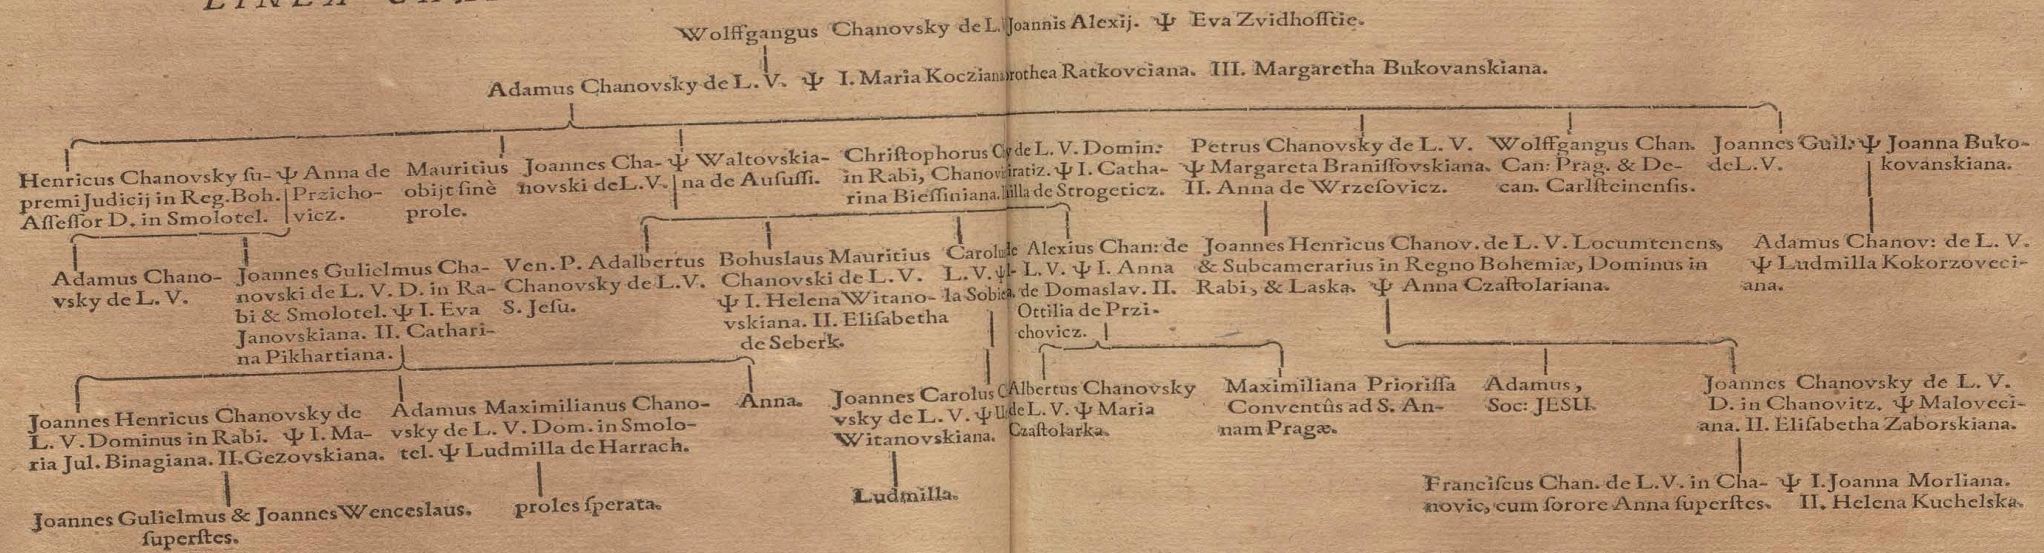 Wolffgangus Chanovsky de L. Joannis Alexij. Ψ Eva Zvidhoſſtie.
Adamus Chanovsky de L. V. Ψ I. Maria Koczian rothea Ratkovciana. III. Margaretha Bukovanskiana.
Henricus Chanovsky ſu-
premi Judicij in Reg. Boh.
Aſſeſſor D. in Smolotel.
Ψ Anna de
Przicho-
vicz.
Mauritius
obijt ſinè
prole.
Joannes Cha-
novski de L. V.
Ψ Waltovskia-
na de Auſuſſi.
Chriſtophorus C y de L. V. Domin:
in Rabi, Chanov iratiz. Ψ I. Catha-
rina Bieſſiniana. illa de Strogeticz.
Petrus Chanovsky de L. V.
Ψ Margareta Braniſſovskiana.
II. Anna de Wrzeſovicz.
Wolffgangus Chan.
Can: Prag. & De-
can. Carlſteinenſis.
Joannes Guil:
de L. V.
Ψ Joanna Buko-
kovanskiana.
Adamus Chano-
vsky de L. V.
Joannes Gulielmus Cha-
novski de L. V. D. in Ra-
bi & Smolotel. Ψ I. Eva
Janovskiana. II. Cathari-
na Pikhartiana.
Ven. P. Adalbertus
Chanovsky de L. V.
S. Jeſu.
Bohuslaus Mauritius
Chanovski de L. V.
Ψ I. Helena Witano-
vskiana. II. Eliſabetha
de Seberk.
Carolu
L. V. Ψ
la Sobie
Alexius Chan: de
L. V. Ψ I. Anna
de Domaslav. II.
Ottilia de Przi-
chovicz.
Joannes Henricus Chanov. de L. V. Locumtenens,
& Subcamerarius in Regno Bohemiæ, Dominus in
Rabi, & Laska. Ψ Anna Czaſtolariana.
Adamus Chanov: de L. V.
Ψ Ludmilla Kokorzoveci-
ana.
Joannes Henricus Chanovsky de
L. V. Dominus in Rabi. Ψ I. Ma-
ria Jul. Binagiana. II. Gezovskiana.
Adamus Maximilianus Chano-
vsky de L. V. Dom. in Smolo-
tel. Ψ Ludmilla de Harrach.
Anna.
Joannes Carolus C
vsky de L. V. Ψ
Witanovskiana.
Albertus Chanovsky
de L. V. Ψ Maria
Czaſtolarka.
Maximiliana Prioriſſa
Conventûs ad S. An-
nam Pragæ.
Adamus,
Soc: JESU.
Joannes Chanovsky de L. V.
D. in Chanovitz. Ψ Maloveci-
ana. II. Eliſabetha Zaborskiana.
Joannes Gulielmus & Joannes Wenceslaus.
ſuperſtes.
proles ſperata.
Ludmilla.
Franciſcus Chan. de L. V. in Cha-
novic, cum ſorore Anna ſuperſtes.
Ψ I. Joanna Morliana.
II. Helena Kuchelska.